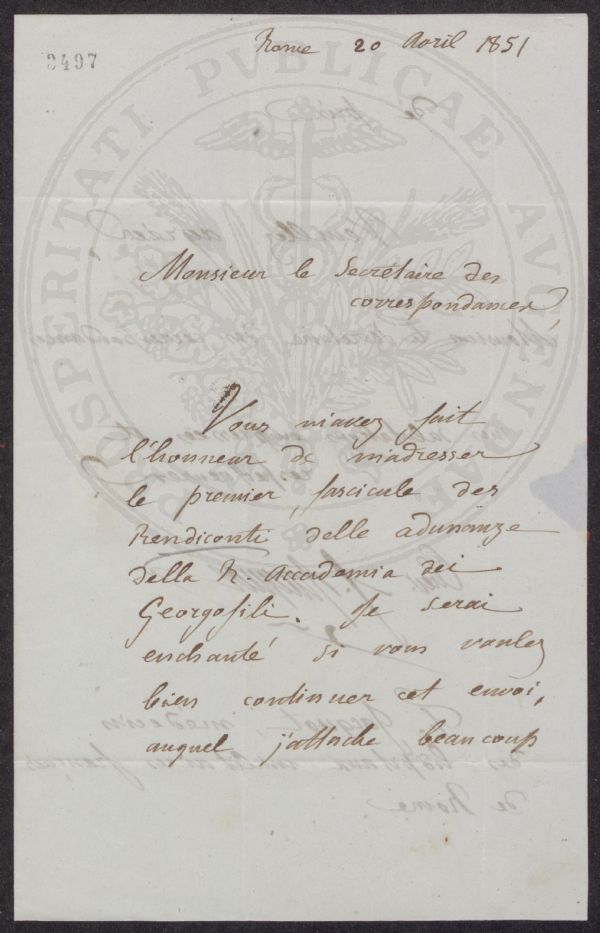 2497
Rome 20 Avril 1851
PROSPERITATI PVBLICAE AVGENDAE
Monsieur le Secrétaire des
correspondances
Vous m'avez fait
l'honneur de m'adresser
le premier fascicule des
Rendiconti delle adunanze
della R. Accademia dei
Georgofili. Je serai
enchanté si vous voulez
bien continuer cet envoi,
auquel j'attache beaucoup